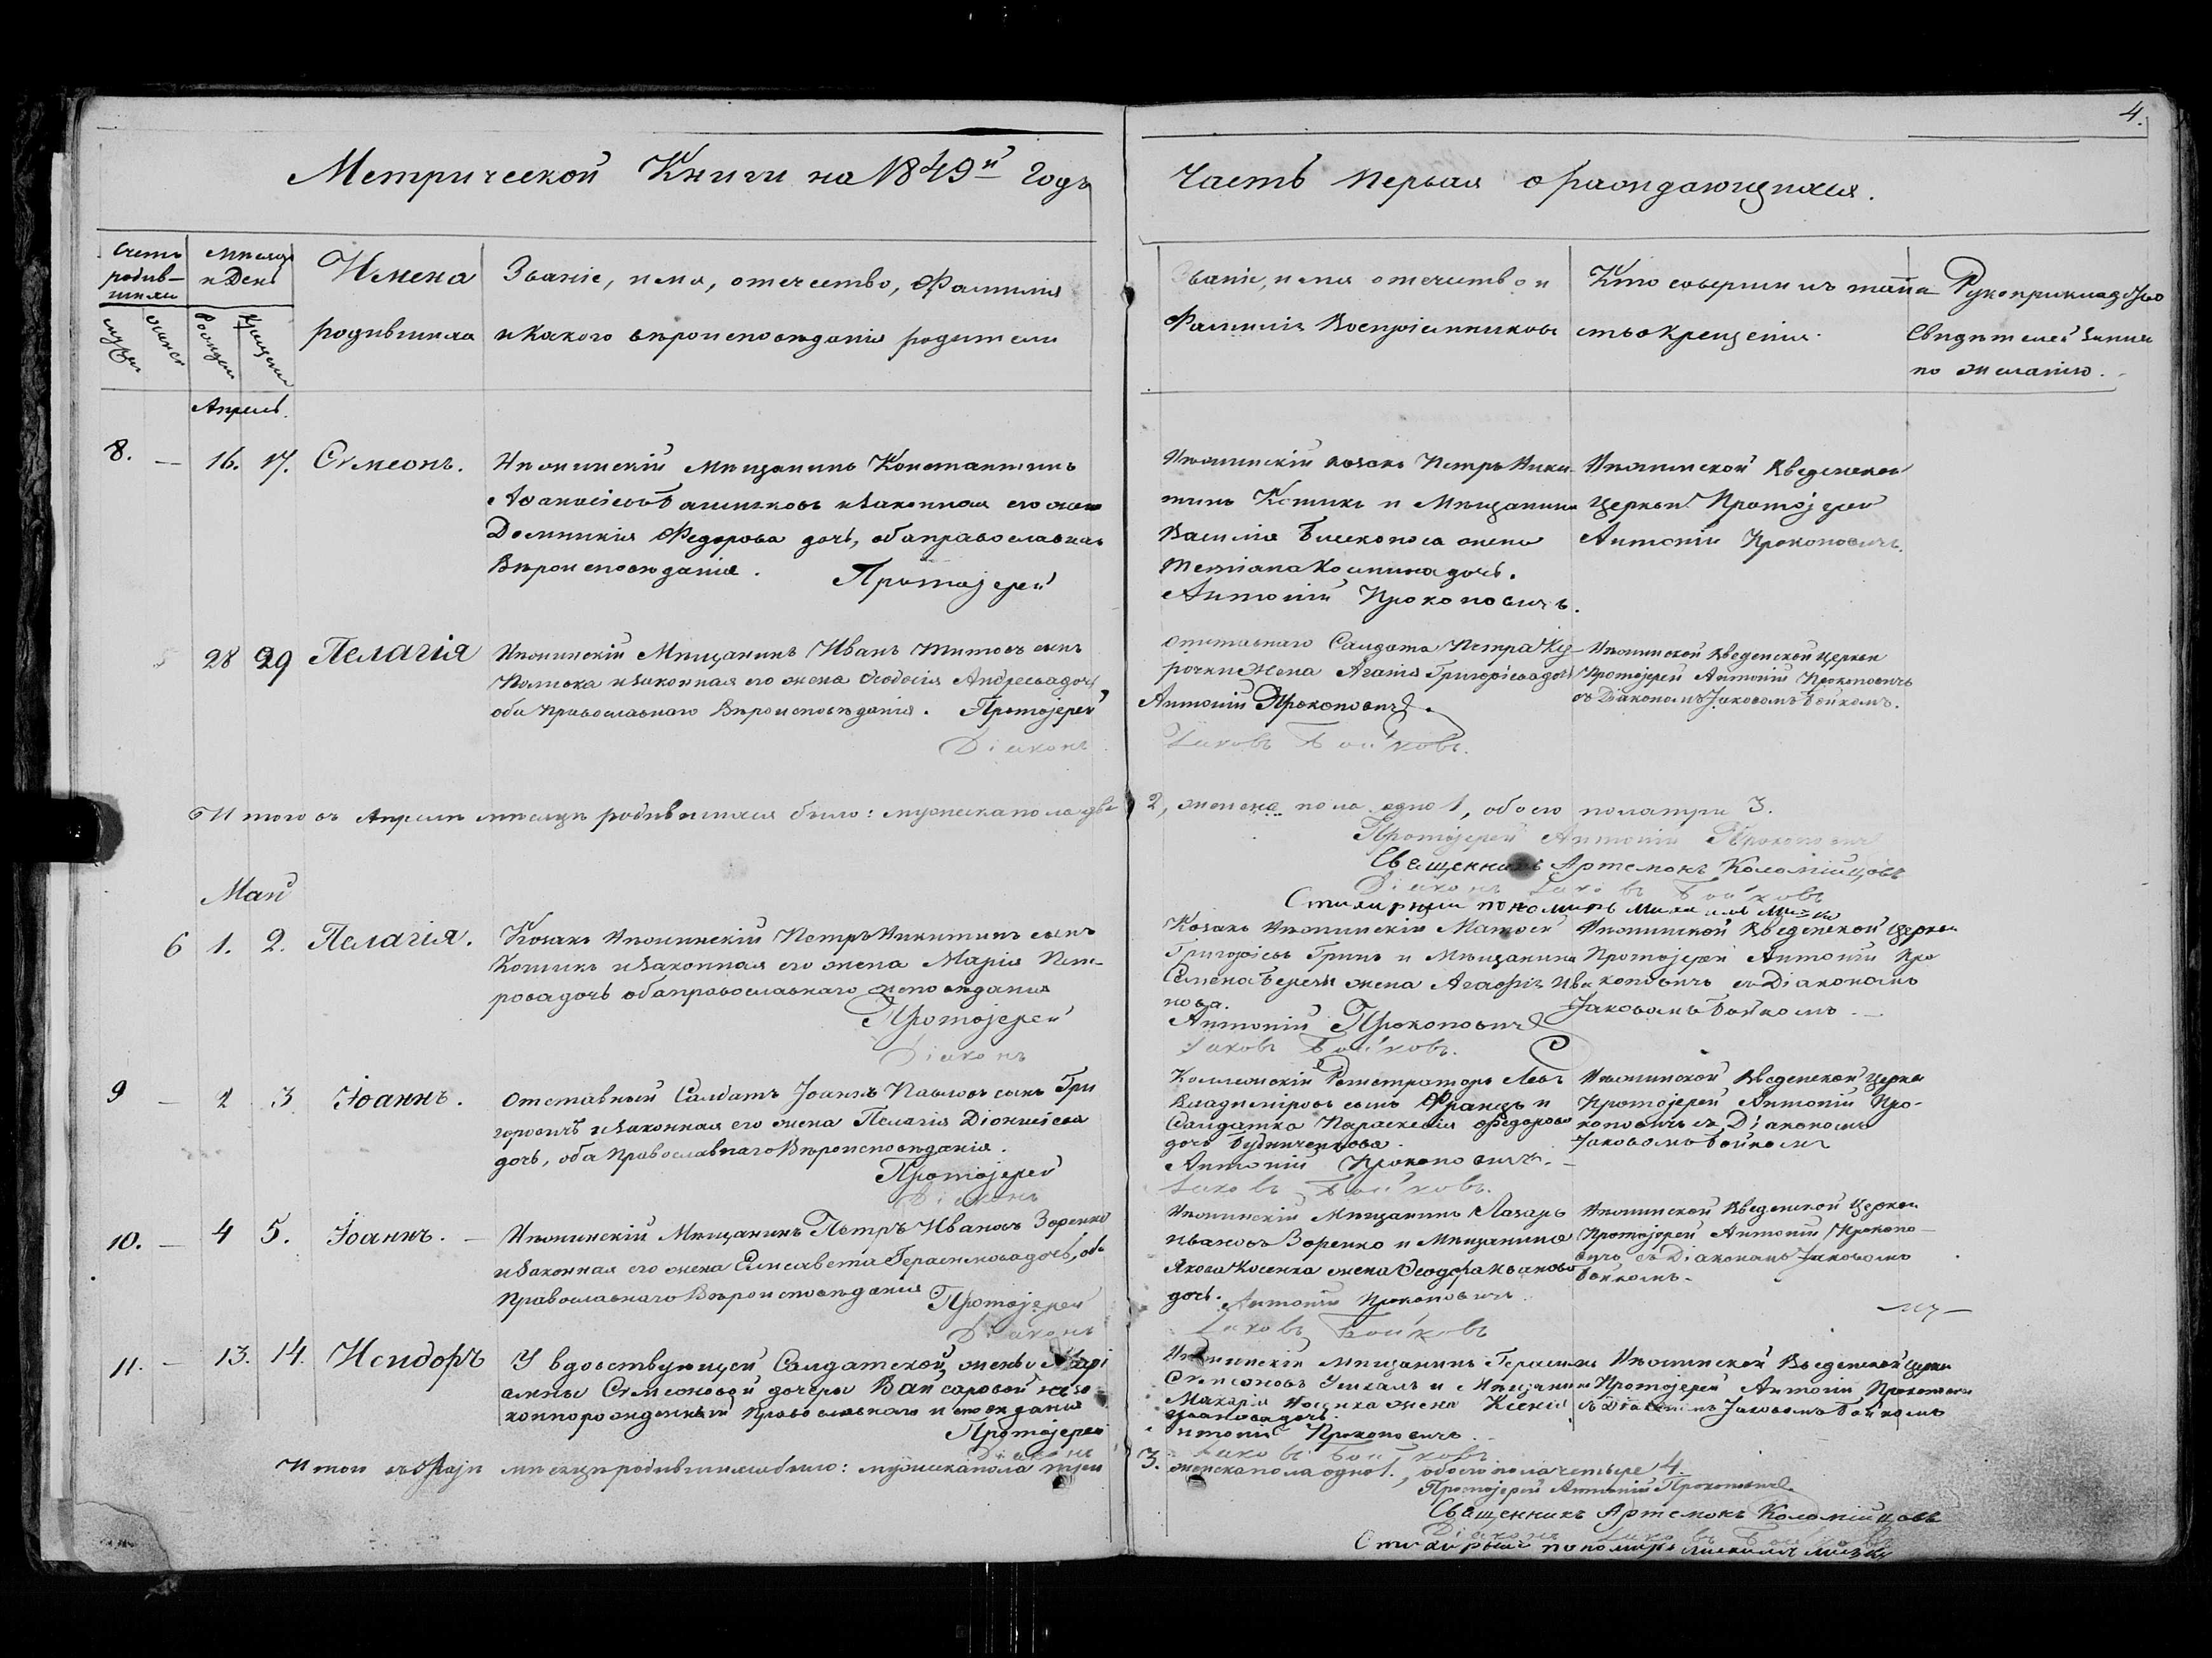 4.
Метрической Книги на 1849й Годъ
Часть первая о раждающихся.
Счетъ родив-шихся
Мѣсяцъ и День
Имена родившихся
Званіе, имя, отчество, Фамилія
и какого вѣроисповѣданія родители
Званіе, имя отчество и
Фамилія Воспріемниковъ
Кто совершилъ таин
ство крещенія.
Рукоприкладство
Свидѣтелей записи
по желанію.
Апрель.
8. — 16. 17. Сѵмеонъ.
Мѣщанинъ Константинъ
и законная его жена
Домникія Федорова дочь, оба православнаго
Вѣроисповѣданія. Протоіерей
козакъ Петръ Ники-
тинъ Котикъ и Мѣщанина
Василія жена
Татіана дочь.
Антоній Прокоповичъ.
Введенской
церкви Протоіерей
Антоній Прокоповичъ.
5 28 29 Пелагія
Мѣщанинъ Иванъ Титовъ сынъ
и законная его жена Ѳеодосія Андреева дочь
оба Православнаго Вѣроисповѣданія. Протоіерей
Діаконъ
отставнаго Салдата Петра Ку-
рочки жена Агапія Григоріева дочь
Антоній Прокоповичъ.
Іаковъ Бойковъ.
Введенской Церкви
Протоіерей Антоній Прокоповичъ
съ Діакономъ Іаковомъ Бойкомъ.
Итого въ Апрелѣ мѣсяцѣ родившихся было: мужеска пола два
2, женска пола одно 1, обоего пола три 3.
Протоіерей Антоній Прокоповичъ
Священникъ Артемонъ Коломійцовъ
Діаконъ Іаковъ Бойковъ
Стихарный пономарь
Май
6 1. 2. Пелагія.
Козакъ Петръ Никитинъ сынъ
Котикъ и законная его жена Марія Пет-
рова дочь оба православнаго исповѣданія
Протоіерей
Діаконъ
Козакъ Матвей
Григоріевъ Гринь и Мѣщанина
Семена жена Агафія Ива
нова.
Антоній Прокоповичъ
Іаковъ Бойковъ.
Введенской Церкви
Протоіерей Антоній Про
коповичъ съ Діакономъ
Іаковомъ Бойкомъ.
9 — 2 3 Іоаннъ.
Отставный Салдатъ Іоаннъ Павловъ сынъ Гри
горовичъ и законная его жена Пелагія Діонисіева
дочь, оба Православнаго Вѣроисповѣданія.
Протоіерей
Діаконъ
Регистраторъ Левъ
Владиміровъ сынъ Францъ и
Салдатка Параскевія Федорова
дочь
Антоній Прокоповичъ.
Іаковъ Бойковъ.
Введенской Церкви
Протоіерей Антоній Про-
коповичъ съ Діакономъ
Іаковомъ Бойкомъ
10. — 4 5. Іоаннъ.
Мѣщанинъ Петръ Ивановъ Зоренко
и законная его жена Елисавета Герасимова дочь, оба
Православнаго Вѣроисповѣданія
Протоіерей
Діаконъ
Мѣщанинъ Лазарь
Ивановъ Зоренко и Мѣщанина
Якова Косенка жена Ѳеодора Иванова
дочь.
Антоній Прокоповичъ
Іаковъ Бойковъ
Введенской Церкви
Протоіерей Антоній Прокопо-
вичъ съ Діакономъ Іаковомъ
Бойкомъ.
11. — 13. 14. Исидоръ
У вдовствующей Салдатской жены Марі
анны Сѵмеоновой дочери неза
коннорожденный Православнаго исповѣданія
Протоіерей
Діаконъ
мѣщанинъ Герасимъ
Сѵмеоновъ и Мѣщанина
Макарія жена Ксенія
дочь.
Антоній Прокоповичъ
Іаковъ Бойковъ
Введенской Церкви
Протоіерей Антоній Прокоповичъ
съ Діакономъ Іаковомъ Бойкомъ
Итого въ Маіи мѣсяцѣ родившихся было: мужеска пола три
3. женска пола одно 1., обоего пола четыре 4.
Протоіерей Антоній Прокоповичъ.
Священникъ Артемонъ Коломійцовъ
Діаконъ Іаковъ Бойковъ
Стихарный пономарь